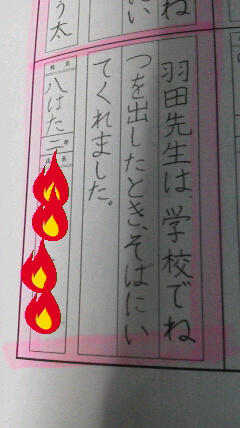 ね
にい
う太
羽田先生は、学校でね
つを出したとき、そばにい
てくれました。
八はた三年